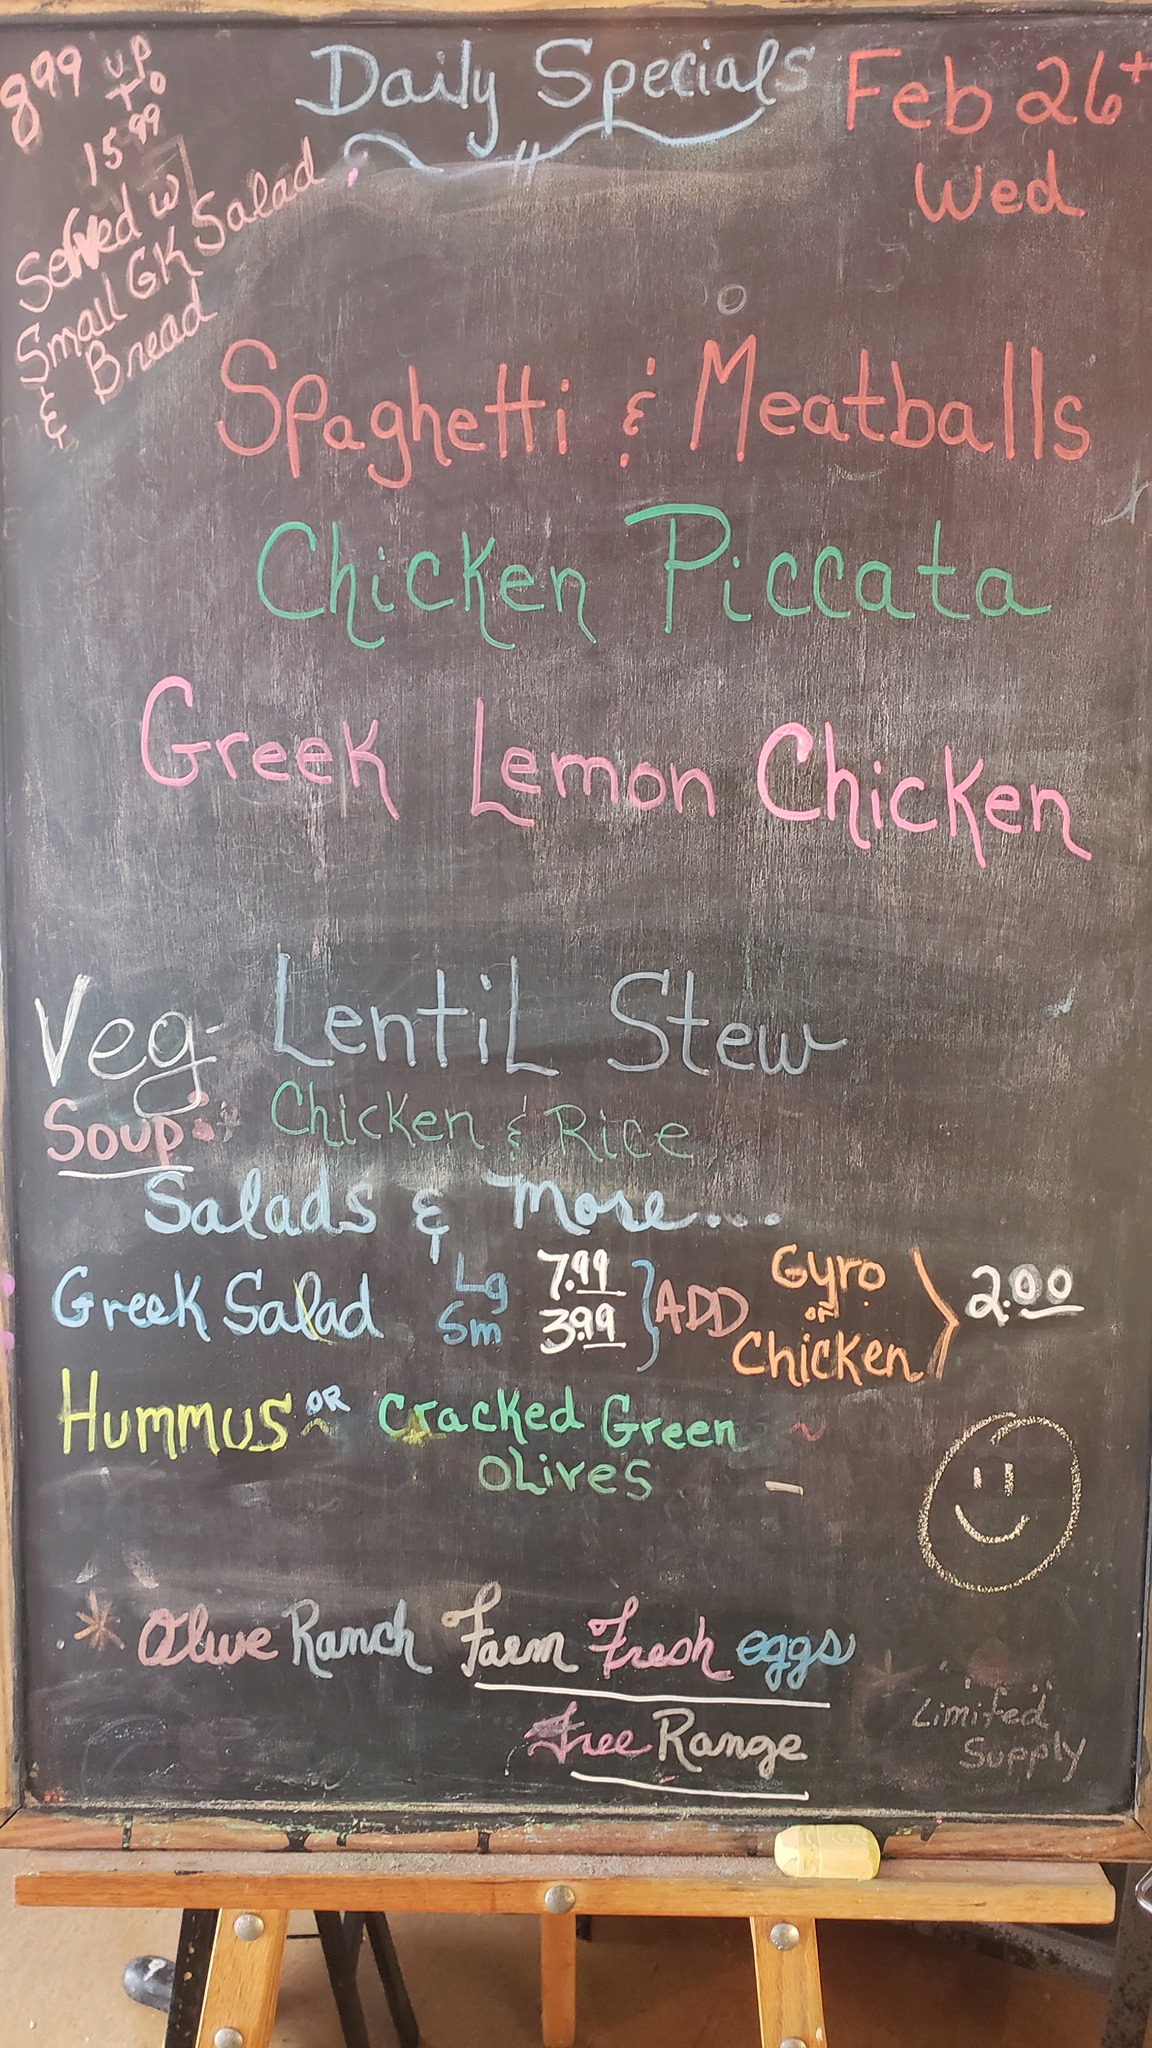 Daily Specials
Feb 26th
Wed
8.99 up
to
15.99
Served w
Small GK Salad
& Bread
Spaghetti & Meatballs
Chicken Piccata
Greek Lemon Chicken
Veg- Lentil Stew
Soup: Chicken & Rice
Salads & More...
Greek Salad Lg 7.99 } ADD Gyro or Chicken > 2.00
Sm 3.99
Hummus OR Cracked Green
Olives
* Olive Ranch Farm Fresh eggs
Free Range
Limited
Supply